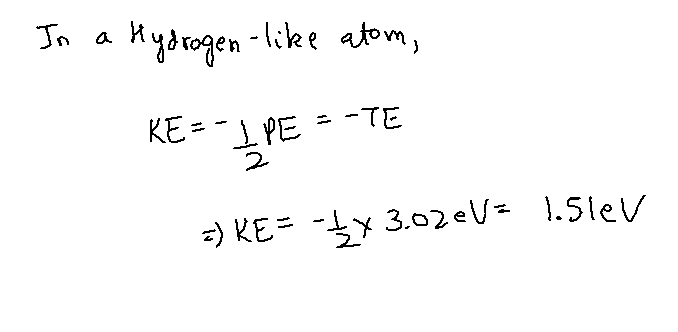 In a Hydrogen-like atom,
KE = -1/2 PE = -TE
⇒ KE = -1/2 × 3.02 eV = 1.51 eV